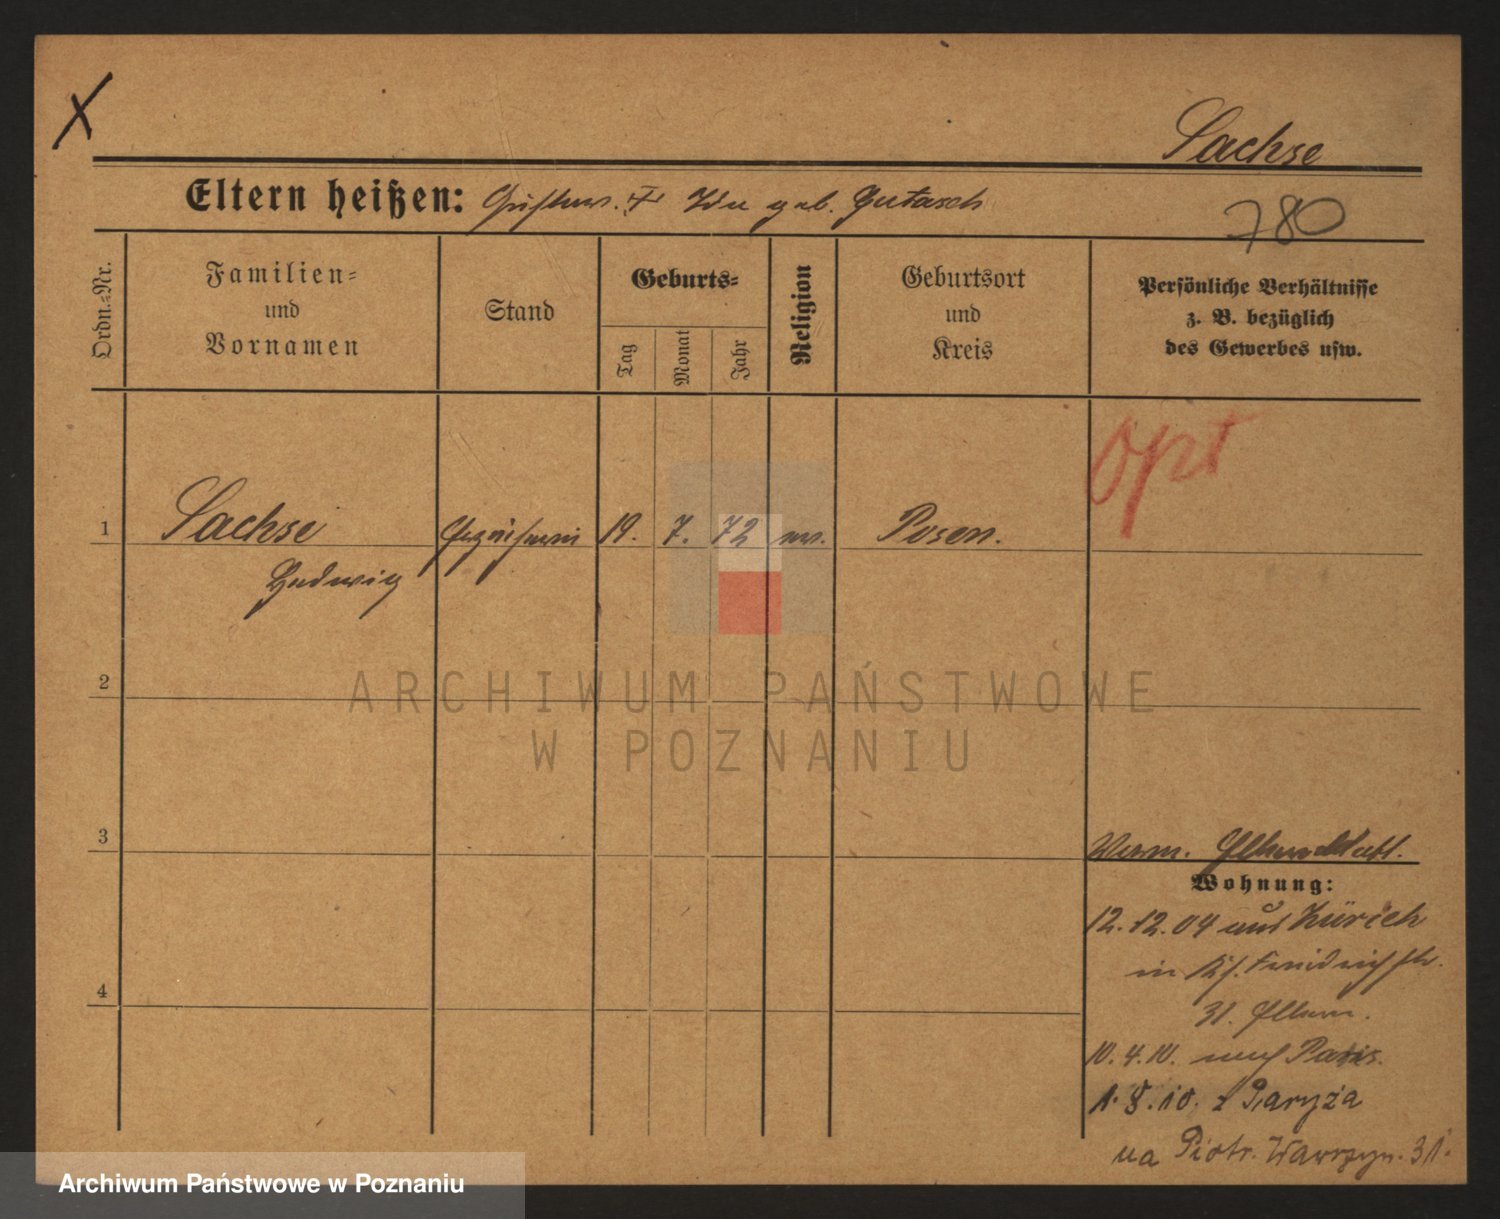 X
Sachse
Eltern heißen: Gustav. ✝ Ida geb. Gutasch
780
Ordn.=Nr.
Familien=
und
Vornamen
Stand
Geburts=
Tag
Monat
Jahr
Religion
Geburtsort
und
Kreis
Persönliche Verhältnisse
z. B. bezüglich
des Gewerbes usw.
opt
1
Sachse
19. 7. 72
Posen.
Hedwig
2
ARCHIWUM PAŃSTWOWE
W POZNANIU
3
Wohnung:
12.12.04 aus Zürich
in
31. Eltern.
4
10.4.10. nach Paris.
1.8.10. z Paryża
na Piotr. Wawrzyn. 31.
Archiwum Państwowe w Poznaniu